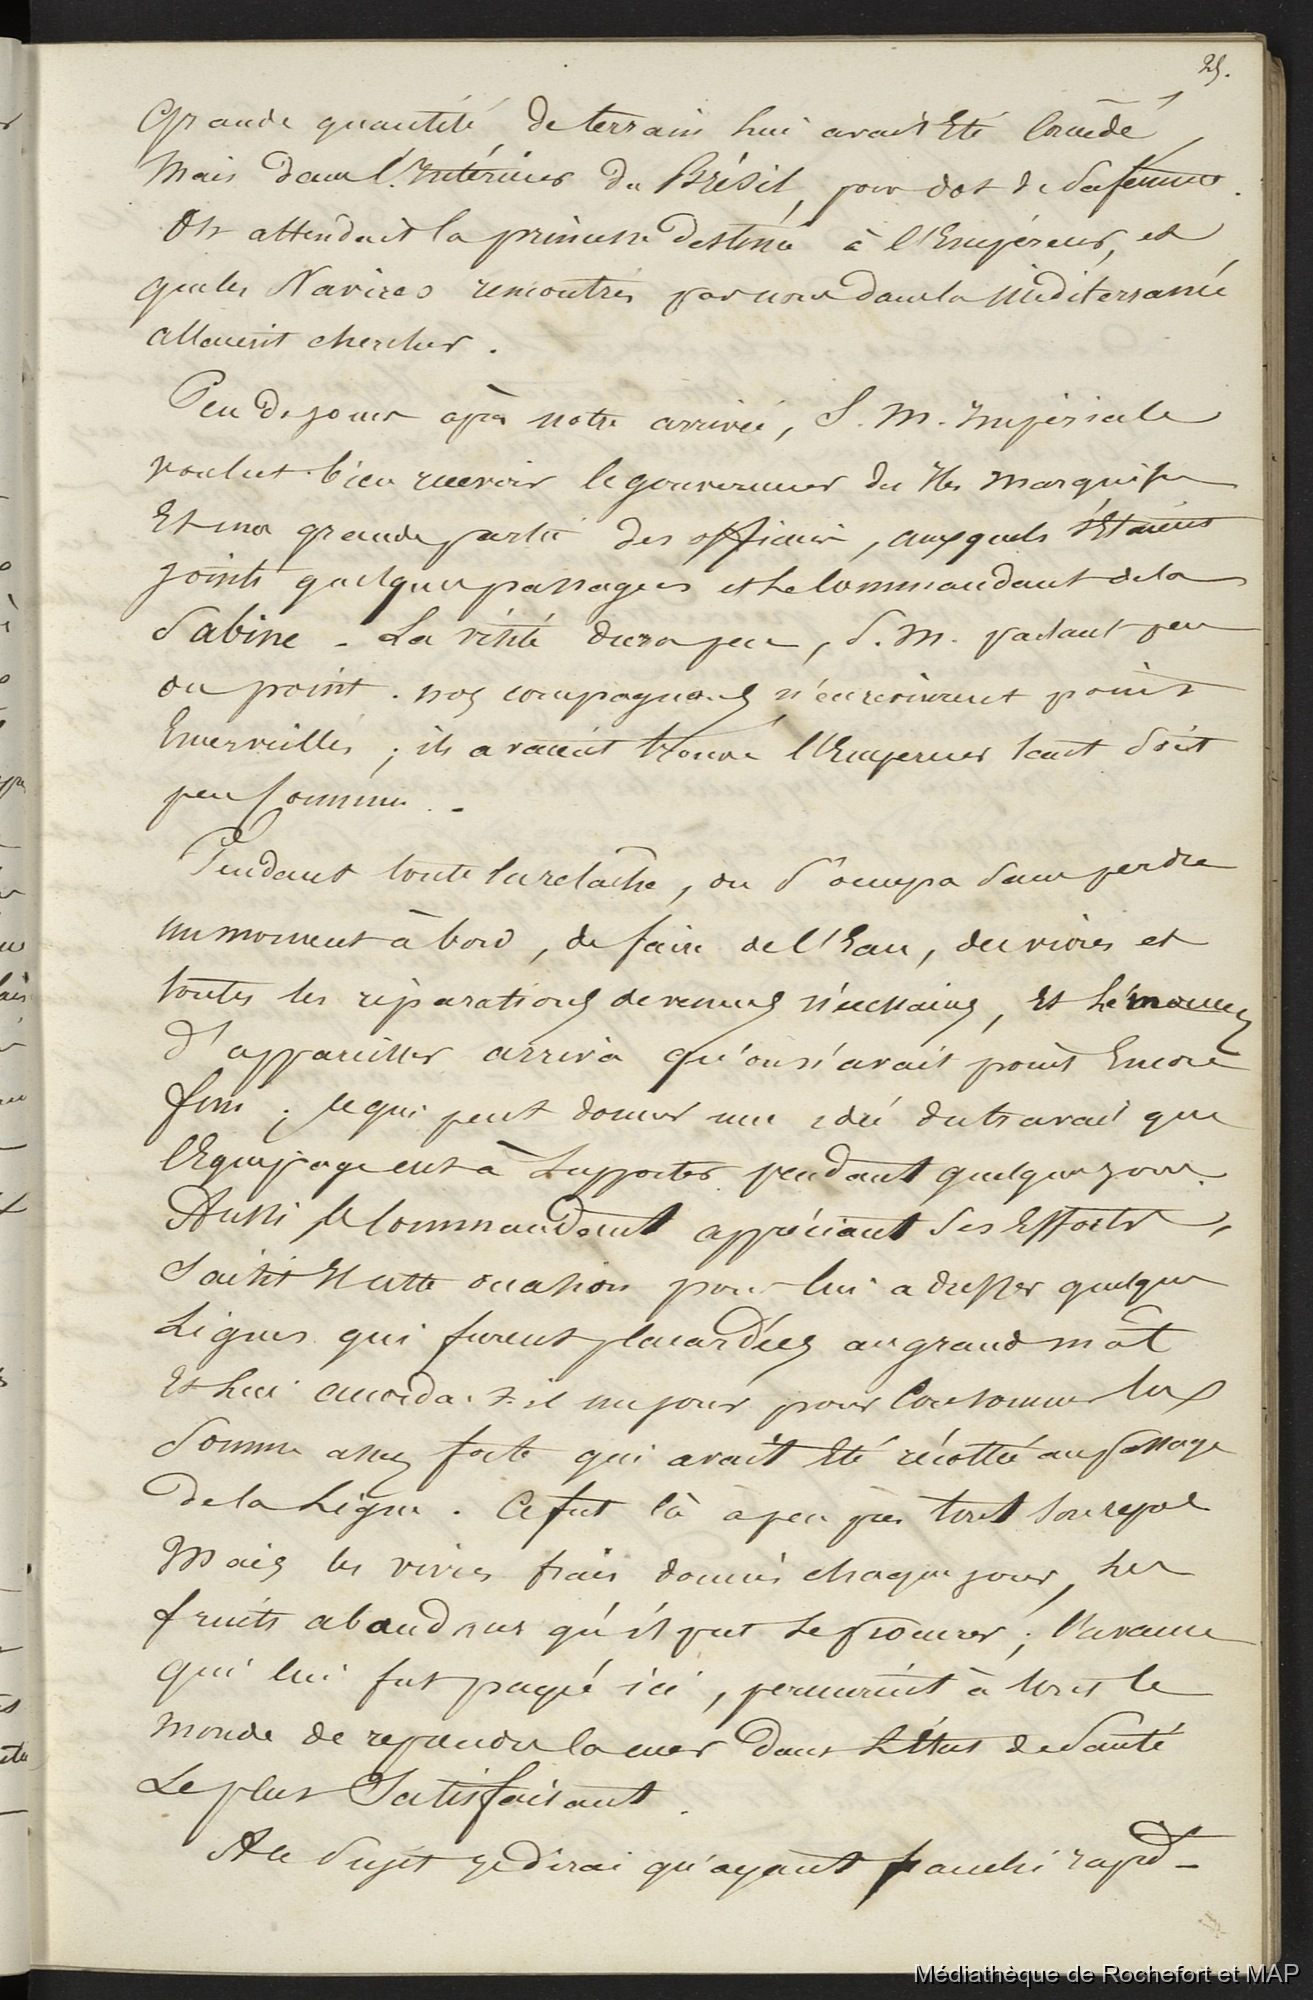 25.
Grande quantité de terrain lui avait Eté Concédé,
Mais dans l'Intérieur du Brésil, pour dot de sa femme.
On attendait la princesse destinée à l'Empéreur, et
que les Navires rencontrés par nous dans la Méditerranée
allaient chercher.
Peu de jours après notre arrivée, S. M. Impériale
voulut bien recevoir le gouverneur des Iles Marquises
Et une grande partie des officiers, auxquels s'Etaient
joints quelques passagers et Le Commandant de la
Sabine - La visite dura peu, S. M. parlant peu
ou point. nos compagnons n'en revinrent point
Emerveillés ; ils avaient trouvé l'Empereur tant Soit
peu Commun. -
Pendant toute la relâche, on S'occupa Sans perdre
un moment à bord, de faire de l'Eau, des vivres et
toutes les réparations devenues nécessaires, Et Le moment
d'appareiller arriva qu'on n'avait point Encore
fini ; ce qui peut donner une idée du travail que
l'Equipage eut à Supporter pendant quelques jours.
Aussi le Commandant appréciant Ses Efforts,
Saisit Il cette occasion pour lui adresser quelques
Lignes qui furent placardées au grand mât
Et Lui accorda-t-il un jour pour Consommer la
Somme assez forte qui avait Eté récoltée au passage
de la Ligne. Ce fut là à peu près tout Son repos
Mais les vivres frais donnés chaque jour, Les
fruits abondans qu'il put Se procurer ; l'avance
qui lui fut payée ici, permirent à tout le
monde de reprendre la mer dans L'état de Santé
Le plus Satisfaisant.
A ce Sujet je dirai qu'ayant franchi rapid-
Médiathèque de Rochefort et MAP